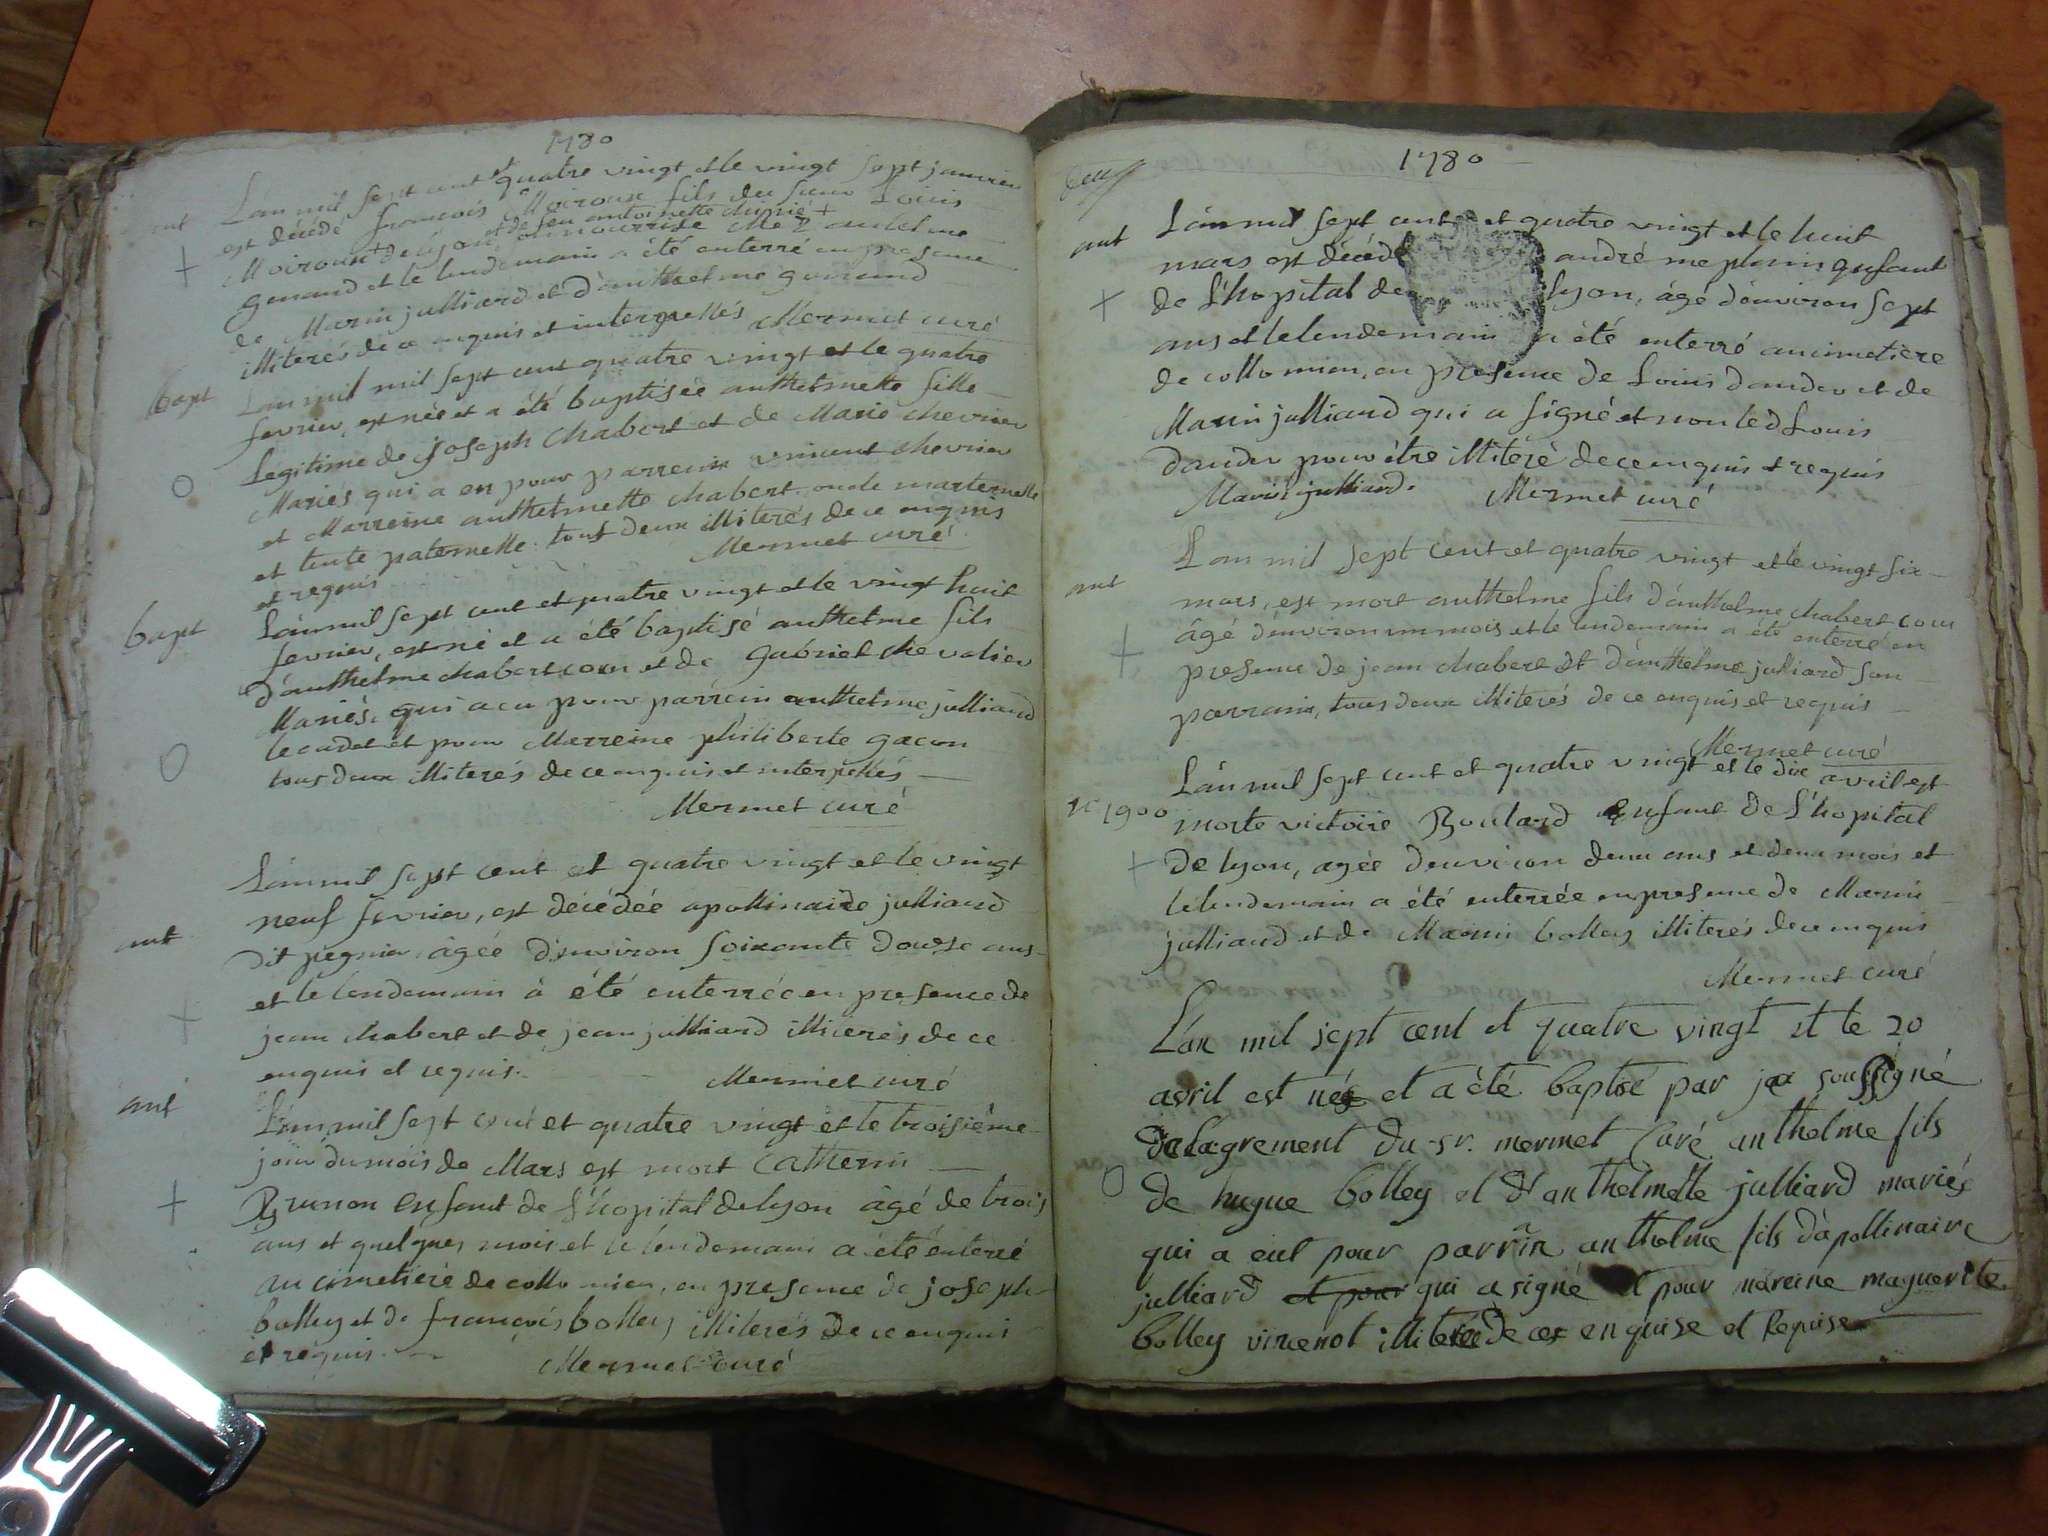 1780
L'an mil sept cent et quatre vingt et le vingt sept janvier
est décédé françois Moiroux fils du sieur Louis
et de feu antoinette
Moiroux de lyon, en nourrisse
et le lendemain a été enterré en presence
de Marin julliard et d'anthelme
illiterés de ce enquis et interpellés Mermet curé
bapt
L'an mil mil sept cent quatre vingt et le quatre
fevrier, est née et a été baptisée anthelmette fille
legitime de joseph Chabert et de Marie chevrier
Mariés qui a eu pour parrein vincent chevrier
et Marreine anthelmette chabert, oncle marternelle
et tente paternelle tous deux illiterés de ce enquis
et requis Mermet curé
bapt
L'an mil sept cent et quatre vingt et le vingt huit
fevrier, est né et a été baptisé anthelme fils
d'anthelme chabert cou et de Gabriel chevalier
Mariés, qui a eu pour parrein anthelme julliard
le cadet et pour Marreine philiberte gacon
tous deux illiterés de ce enquis et interpellés
Mermet curé
L'an mil sept cent et quatre vingt et le vingt
neuf fevrier, est décédée apollinaire julliard
ant
dit âgée d'environ soixante douse ans
et le lendemain à été enterrée en presence de
jean chabert et de jean julliard illiterés de ce
enquis et requis. Mermet curé
ant
L'an mil sept cent et quatre vingt et le troisième
jour du mois de Mars est mort Catherin
Brunon enfant de l'hopital de lyon âgé de trois
ans et quelques mois et le lendemain a été enterré
au cimetiere de collomieu, en presence de joseph
bolley et de françois bolley illiterés de ce enquis
et requis. Mermet curé
1780
ant
L'an mil sept cent et quatre vingt et le huit
mars est décédé andré enfant
de l'hopital de lyon, âgé d'environ sept
ans et le lendemain a été enterré au cimetiere
de collomieu, en presence de Louis dandev et de
Marin julliard qui a signé et non led Louis
dandev pour être illiteré de ce enquis et requis
Marin julliard. Mermet curé
ant
L'an mil sept cent et quatre vingt et le vingt six
mars, est mort anthelme fils d'anthelme chabert cou
âgé d'environ un mois et le lendemain a été enterré en
presence de jean chabert et d'anthelme julliard son
parrain, tous deux illiterés de ce enquis et requis
Mermet curé
L'an mil sept cent et quatre vingt et le dix avril est
morte victoire Boulard enfant de l'hopital
de lyon, agée d'environ deux ans et deux mois et
le lendemain a été enterrée en presence de Marin
julliard et de Marin bolley illiterés de ce enquis
Mermet curé
L'an mil sept cent et quatre vingt et le 20
avril est né et a été baptisé par je soussigné
de l'agrement du sr. mermet Curé anthelme fils
de hugue bolley et d'anthelmette julliard mariés
qui a eut pour parrin anthelme fils d'apollinaire
julliard et pour qui a signé et pour mareine maguerite
bolley vincenot illiterée de ces enquise et Requise